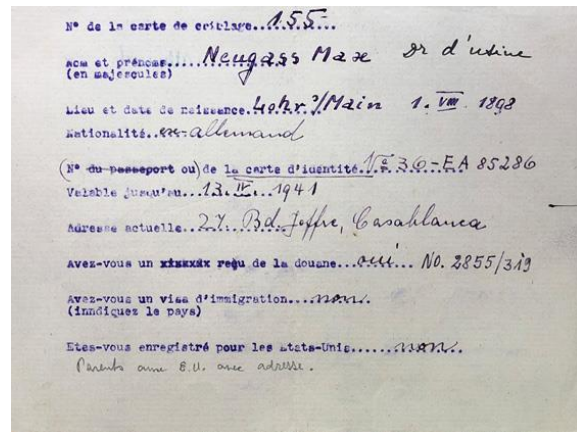 N° de la carte de criblage....155-
Nom et prénoms.....Neugass Max Dr d'usine
(en majuscules)
Lieu et date de naissance.Lohr a/Main 1. VIII. 1898
Nationalité..ex-allemand
(N° du passeport ou) de la carte d'identité..N° 36-EA 85286
Valable jusqu'au..13.IV...1941
Adresse actuelle...27. Bd. Joffre, Casablanca
Avez-vous un xixxxix reçu de la douane...oui... NO. 2855/319
Avez-vous un visa d'immigration....non..
(inndiquez le pays)
Etes-vous enregistré pour les Etats-Unis......non..
Parents aux E.U. avec adresse.